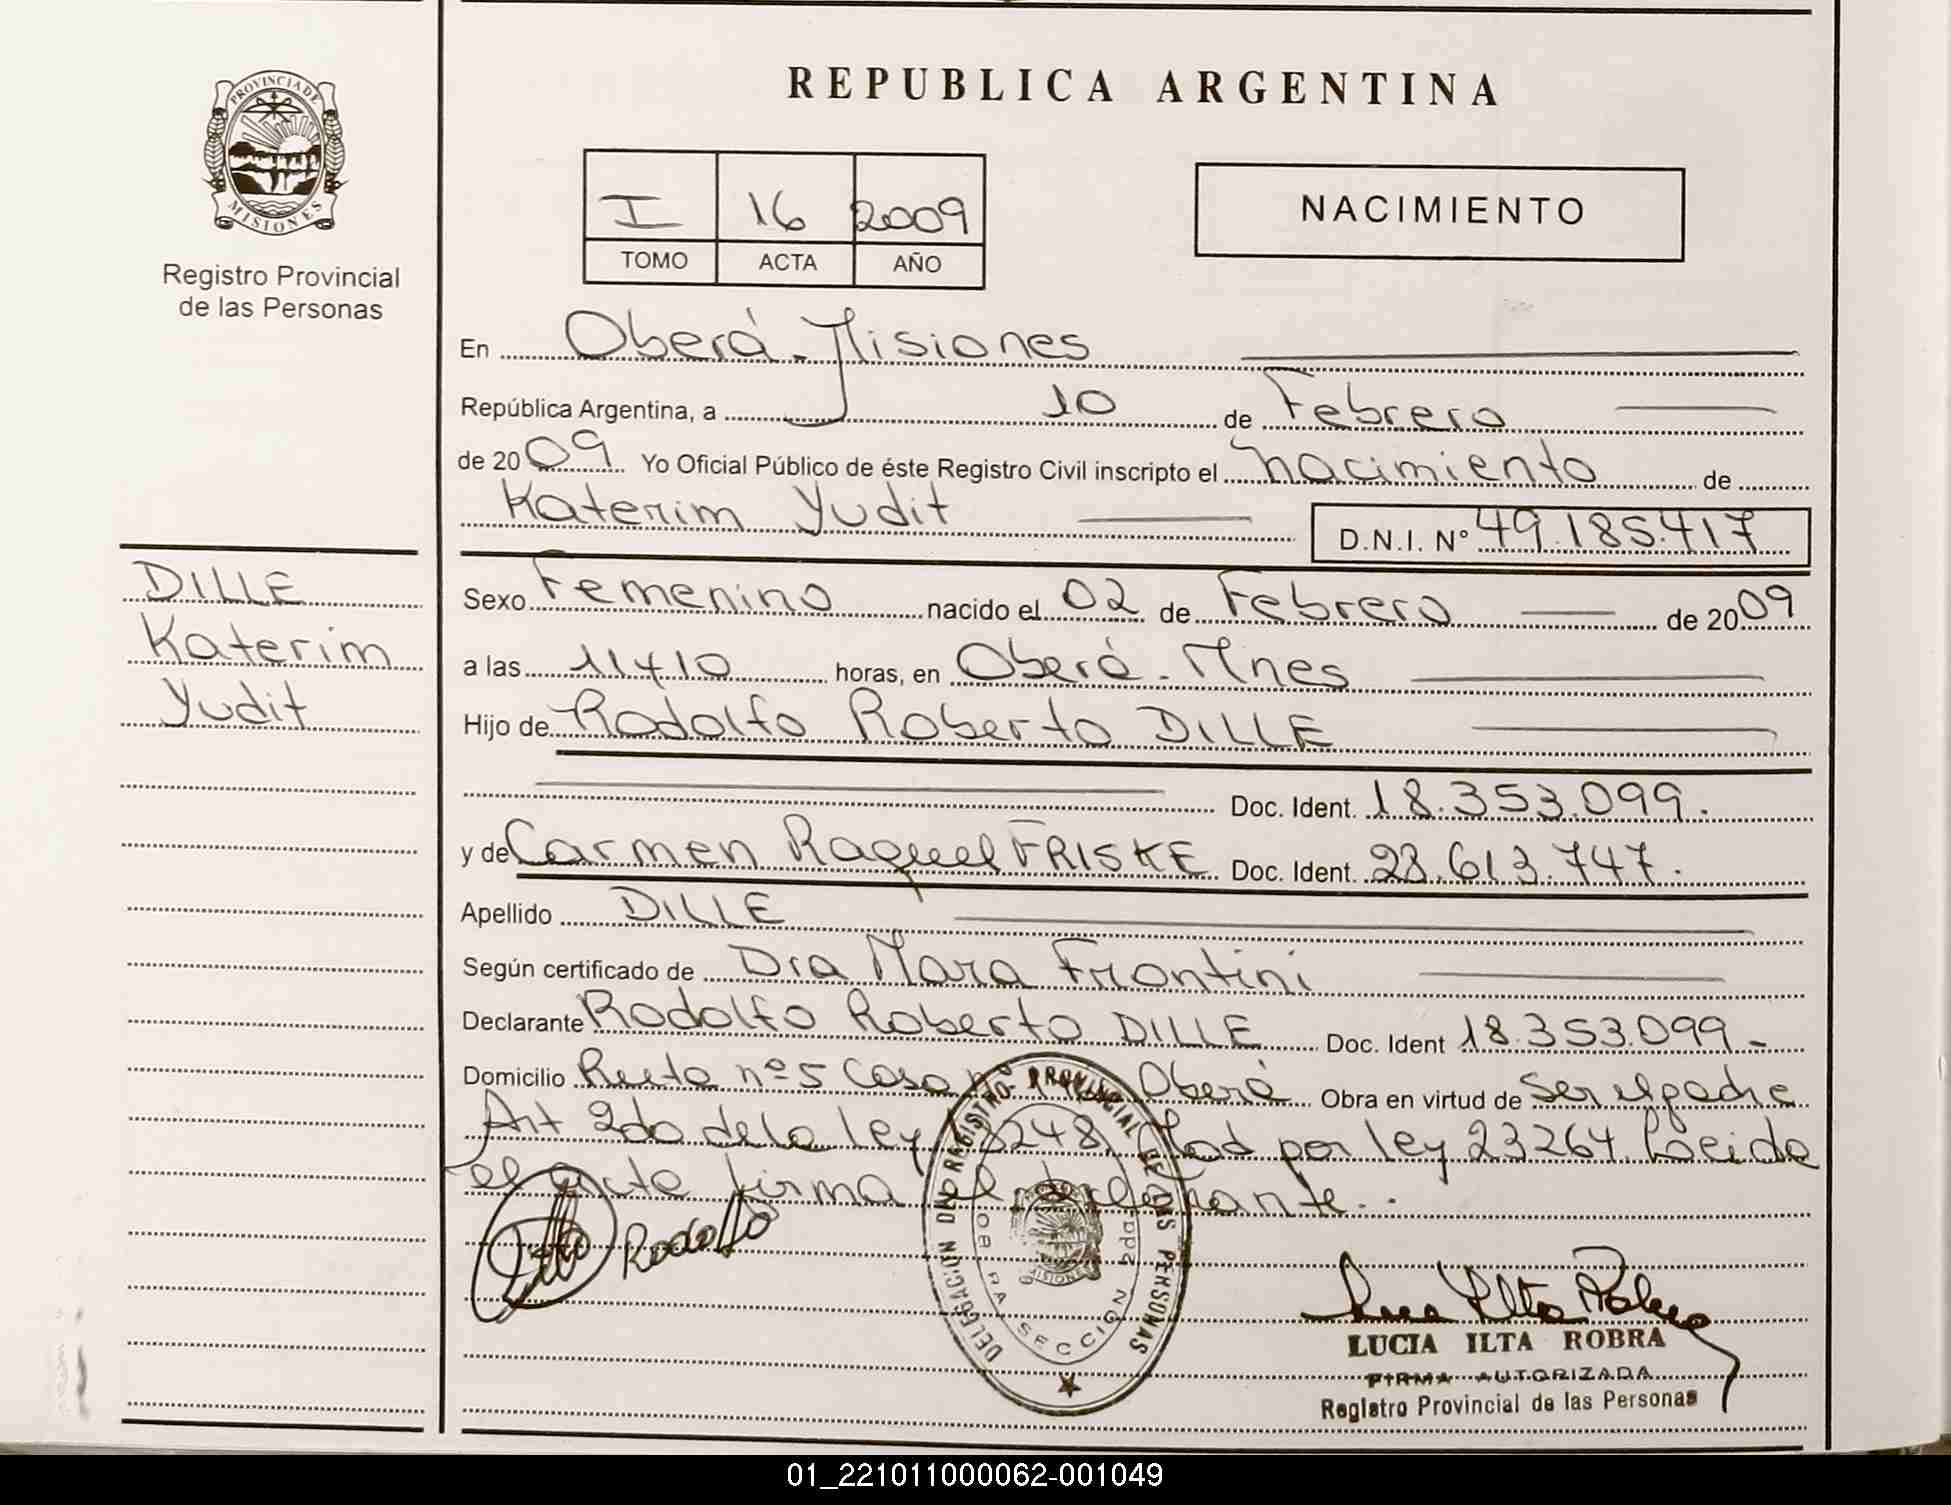 PROVINCIA DE
MISIONES
Registro Provincial
de las Personas
DILLE
Katerim
Yudit
REPUBLICA ARGENTINA
I 16 2009
TOMO ACTA AÑO
NACIMIENTO
En Oberá - Misiones
República Argentina, a 10 de Febrero
de 2009 Yo Oficial Público de éste Registro Civil inscripto el nacimiento de
Katerim Yudit D.N.I. Nº 49.185.417
Sexo Femenino nacido el 02 de Febrero de 2009
a las 11y10 horas, en Oberá - Mnes
Hijo de Rodolfo Roberto DILLE
Doc. Ident. 18.353.099.
y de Carmen Raquel FRISKE Doc. Ident. 23.613.747.
Apellido DILLE
Según certificado de Dra Mara Frontini
Declarante Rodolfo Roberto DILLE Doc. Ident 18.353.099 -
Domicilio Ruta nº 5 Casa Oberá Obra en virtud de ser el padre
Art 2do de la ley 18248 Mod por ley 23264. Leida
el acta firma el declarante.
Rodolfo
DELEGACION DEL REGISTRO PROVINCIAL DE LAS PERSONAS
OBERA SECCION
MISIONES
LUCIA ILTA ROBRA
FIRMA AUTORIZADA
Registro Provincial de las Personas
01_221011000062-001049